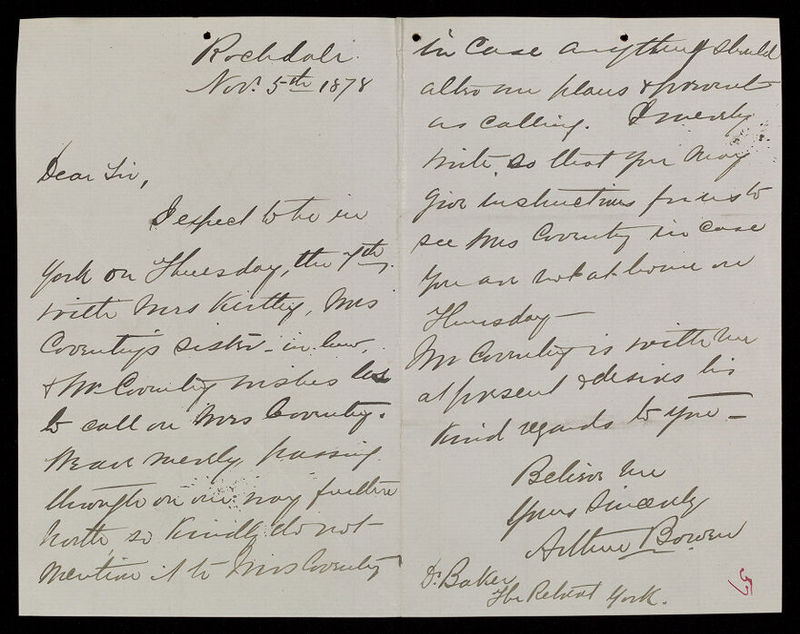 Rochdale.
Nov. 5th 1878
Dear Sir,
I expect to be in
York on Thursday, the 7th,
with Mrs
Coventry's sister-in-law,
& Mr Coventry wishes us
to call on Mrs Coventry.
We are merely passing
through on our way further
north, so kindly do not
mention it to Mrs Coventry
in case anything should
alter our plans & prevent
us calling. I merely
write, so that you may
give instructions for us to
see Mrs Coventry in case
you are not at home on
Thursday—
Mr Coventry is with me
at present & desires his
kind regards to you—
Believe me
Yours Sincerely
Arthur Bowen
Dr. Baker,
The Retreat York.
57